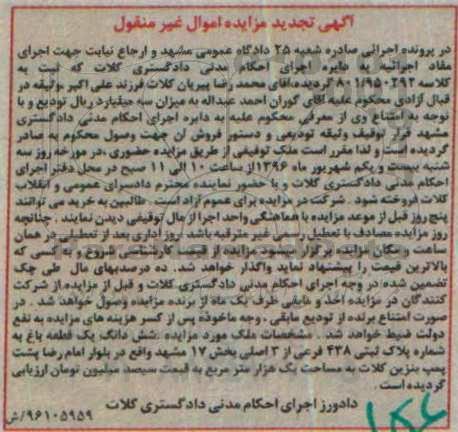 آگهی تجدید مزایده اموال غیر منقول
در پرونده اجرائی صادره شعبه ۲۵ دادگاه عمومی مشهد و ارجاع نیابت جهت اجرای
مفاد اجرائیه به دایره اجرای احکام مدنی دادگستری کلات که ثبت به
کلاسه گردیده، آقای محمد رضا پیریان کلات فرزند علی اکبر ،وثیقه در
قبال آزادی محکوم علیه آقای گوران احمد عبداله به میزان سه میلیارد ریال تودیع و با
توجه به امتناع وی از معرفی محکوم علیه به دایره اجرای احکام مدنی دادگستری
مشهد قرار توقیف وثیقه تودیعی و دستور فروش آن جهت وصول محکوم به صادر
گردیده است و لذا مقرر است ملک توقیفی از طریق مزایده حضوری ،در مورخه روز سه
شنبه بیست و یکم شهریور ماه ۱۳۹۶از ساعت ۱۰ الی ۱۱ صبح در محل دفتر اجرای
احکام مدنی دادگستری کلات و با حضور نماینده محترم دادسرای عمومی و انقلاب
کلات فروخته شود . شرکت در مزایده برای عموم آزاد است . طالبین به خرید می توانند
پنج روز قبل از موعد مزایده با هماهنگی واحد اجرا از مال توقیفی دیدن نمایند . چنانچه
روز مزایده مصادف با تعطیل رسمی غیر مترقبه باشد روز اداری بعد از تعطیلی در همان
ساعت و مکان مزایده برگزار میشود مزایده از قیمت کارشناسی شروع و به کسی که
بالاترین قیمت را پیشنهاد نماید واگذار خواهد شد. ده درصدبهای مال طی چک
تضمین شده در وجه اجرای احکام مدنی دادگستری کلات و قبل از مزایده از شرکت
کنندگان در مزایده اخذ و مابقی ظرف یک ماه از برنده مزایده وصول خواهد شد . در
صورت امتناع برنده از تودیع مابقی ، وجه ماخوذه پس از کسر هزینه های مزایده به نفع
دولت ضبط خواهد شد . مشخصات ملک مورد مزایده :شش دانگ یک قطعه باغ به
شماره پلاک ثبتی ۴۳۸ فرعی از ۳ اصلی بخش ۱۷ مشهد واقع در بلوار امام رضا پشت
پمپ بنزین کلات به مساحت یک هزار متر مربع به قیمت سیصد میلیون تومان ارزیابی
گردیده است .
دادورز اجرای احکام مدنی دادگستری کلات
۹۶۱۰۵۹۵۹/ش